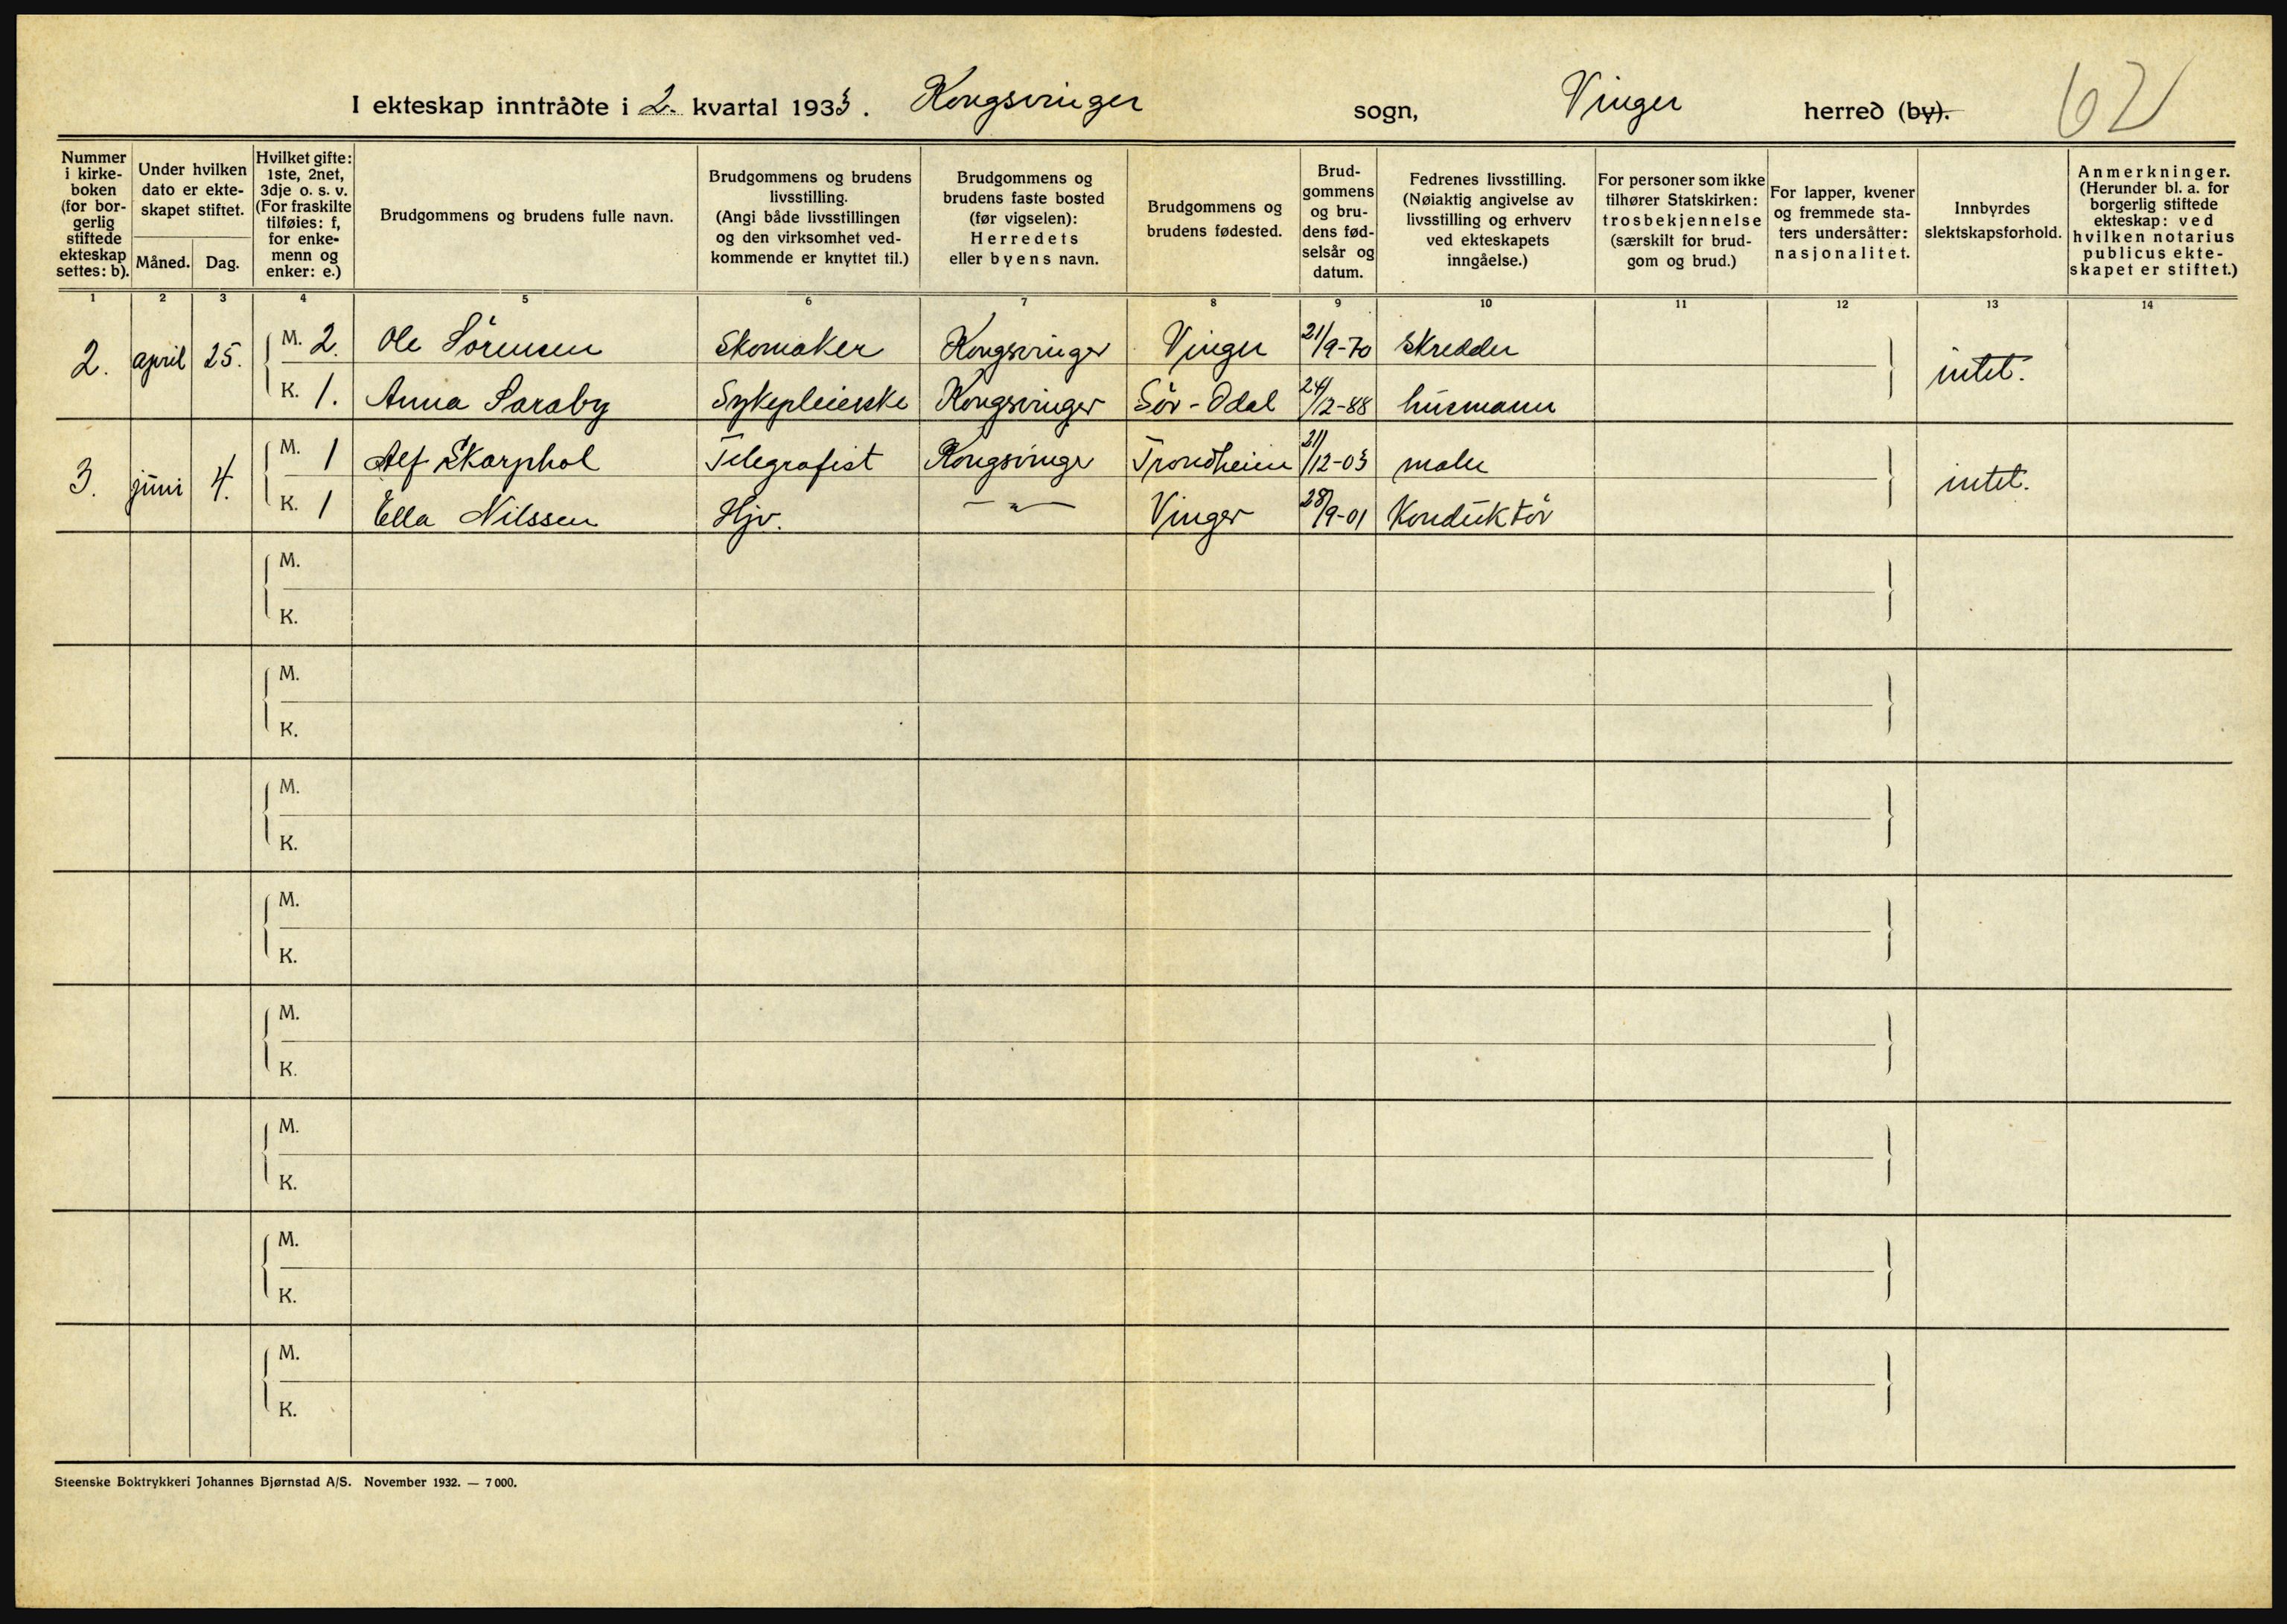 I ekteskap inntrådte i 2. kvartal 1933. Kongsvinger sogn, Vinger herred (by). 62
Nummer i kirke-boken (for bor-gerlig stiftede ekteskap settes: b).
Under hvilken dato er ekte-skapet stiftet.
Måned. Dag.
Hvilket gifte: 1ste, 2net, 3dje o. s. v. (For fraskilte tilføies: f, for enke-menn og enker: e.)
Brudgommens og brudens fulle navn.
Brudgommens og brudens livsstilling. (Angi både livsstillingen og den virksomhet ved-kommende er knyttet til.)
Brudgommens og brudens faste bosted (før vigselen): Herredets eller byens navn.
Brudgommens og brudens fødested.
Brud-gommens og bru-dens fød-selsår og datum.
Fedrenes livsstilling. (Nøiaktig angivelse av livsstilling og erhverv ved ekteskapets inngåelse.)
For personer som ikke tilhører Statskirken: trosbekjennelse (særskilt for brud-gom og brud.)
For lapper, kvener og fremmede sta-ters undersåtter: nasjonalitet.
Innbyrdes slektskapsforhold.
Anmerkninger. (Herunder bl. a. for borgerlig stiftede ekteskap: ved hvilken notarius publicus ekte-skapet er stiftet.)
1 2 3 4 5 6 7 8 9 10 11 12 13 14
2. april 25. M. 2. Ole Sörensen Skomaker Kongsvinger Vinger 21/9-70 Skredder intet.
K. 1. Anna Saraby Sykepleierske Kongsvinger Sör-Odal 24/12-88 husmann
3. juni 4. M. 1 Alf Skarphol Telegrafist Kongsvinger Trondheim 21/12-03 maler intet.
K. 1 Ella Nilssen Hjv. — " — Vinger 28/9-01 Konduktör
M.
K.
M.
K.
M.
K.
M.
K.
M.
K.
M.
K.
M.
K.
M.
K.
Steenske Boktrykkeri Johannes Bjørnstad A/S. November 1932. — 7000.